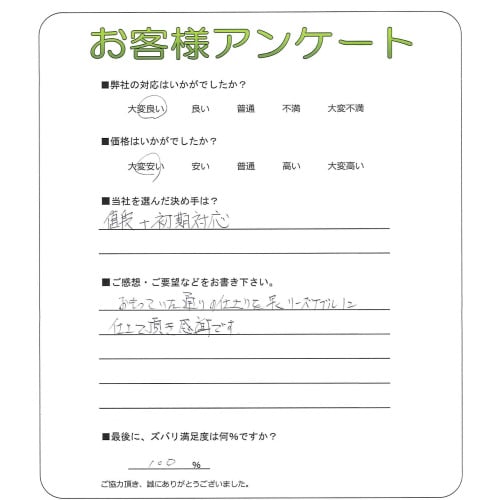 お客様アンケート
■弊社の対応はいかがでしたか？
大変良い 良い 普通 不満 大変不満
■価格はいかがでしたか？
大変安い 安い 普通 高い 大変高い
■当社を選んだ決め手は？
値段＋初期対応
■ご感想・ご要望などをお書き下さい。
おもっていた通りの仕上りを リーズナブルに
仕上て頂き感謝です
■最後に、ズバリ満足度は何%ですか？
100 %
ご協力頂き、誠にありがとうございました。